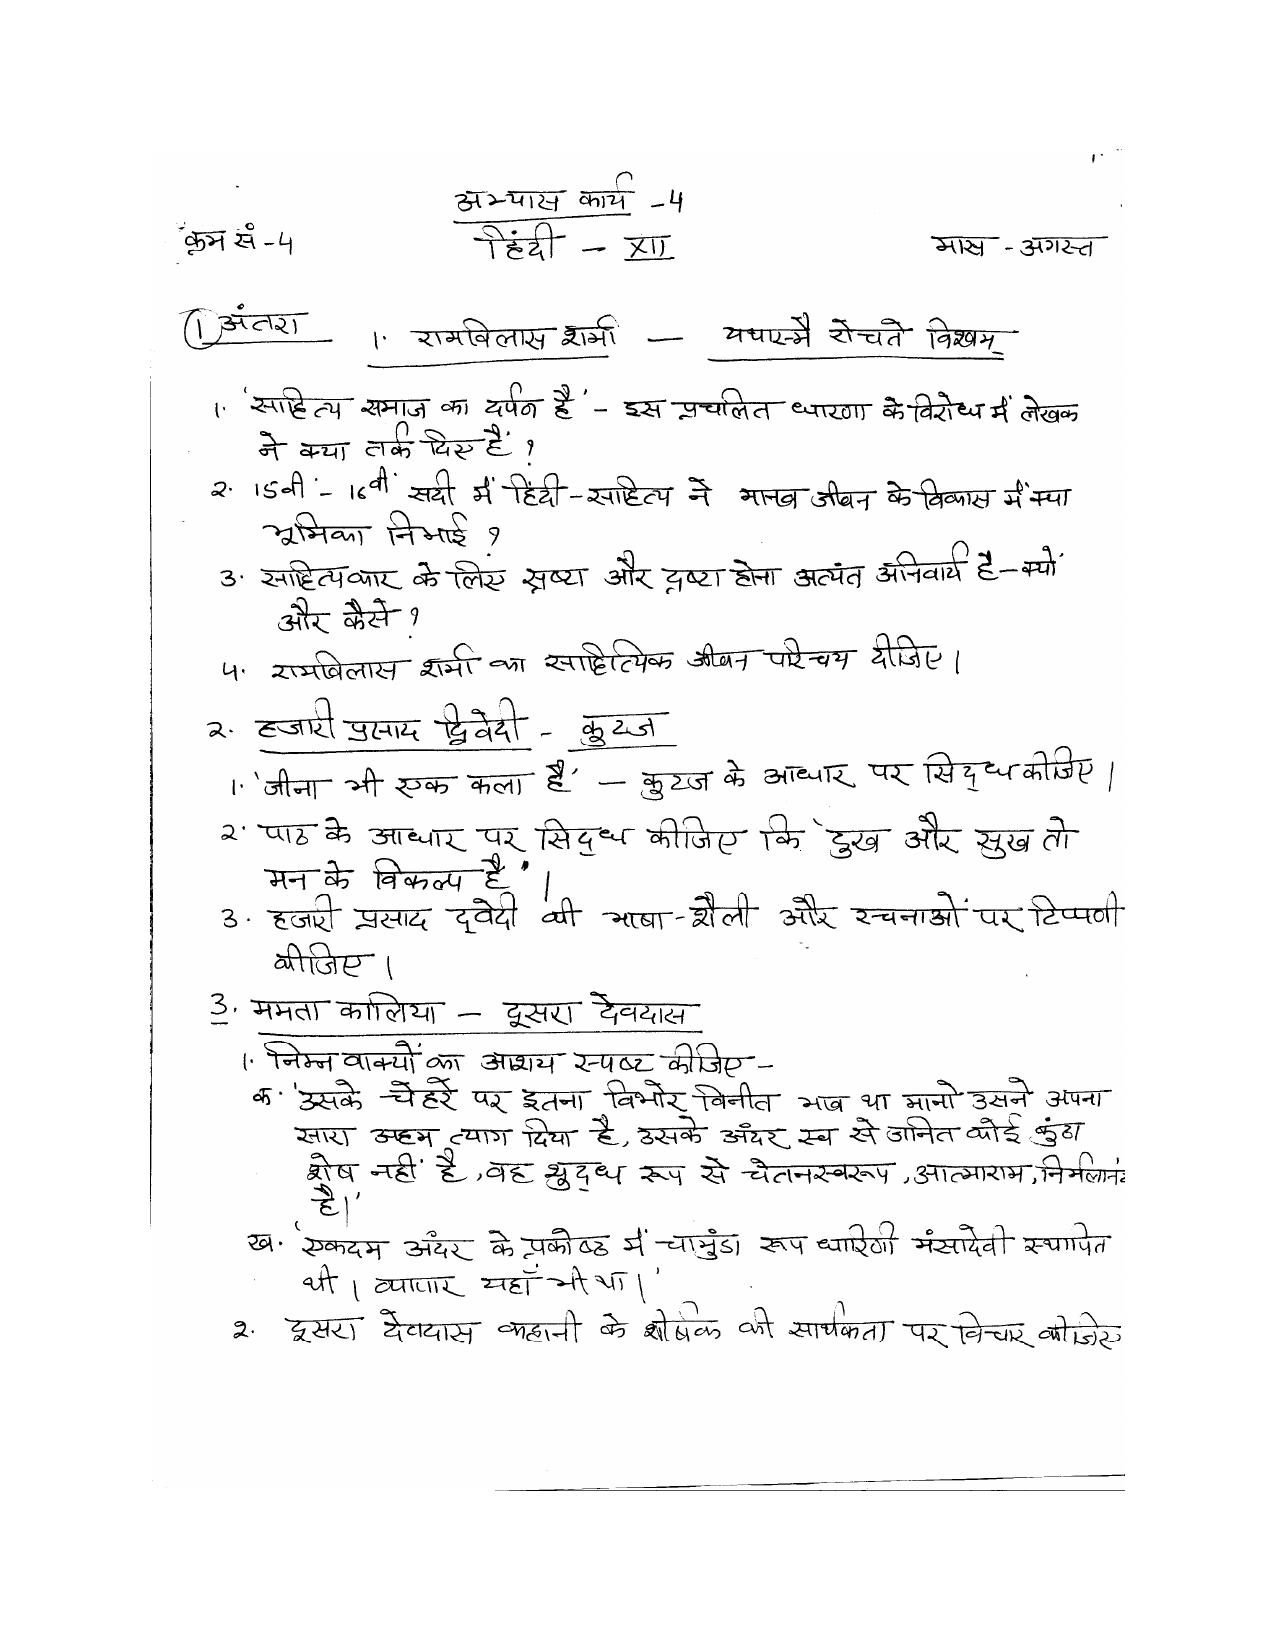 अभ्यास कार्य - 4
क्रम सं - 4 हिंदी - XII मास - अगस्त
1 अंतरा 1. रामविलास शर्मा — यथास्मै रोचते विश्वम्
1. 'साहित्य समाज का दर्पन है' - इस प्रचलित धारणा के विरोध में लेखक
ने क्या तर्क दिए हैं ?
2. 15वीं - 16वीं सदी में हिंदी - साहित्य ने मानव जीवन के विकास में क्या
भूमिका निभाई ?
3. साहित्यकार के लिए स्रष्टा और द्रष्टा होना अत्यंत अनिवार्य है - क्यों
और कैसे ?
4. रामविलास शर्मा का साहित्यिक जीवन परिचय दीजिए।
2. हजारी प्रसाद द्विवेदी - कुटज
1. 'जीना भी एक कला है' — कुटज के आधार पर सिद्ध कीजिए।
2. पाठ के आधार पर सिद्ध कीजिए कि 'दुख और सुख तो
मन के विकल्प हैं'।
3. हजारी प्रसाद द्वेदी की भाषा - शैली और रचनाओं पर टिप्पणी
कीजिए।
3. ममता कालिया — दूसरा देवदास
1. निम्न वाक्यों का आशय स्पष्ट कीजिए -
क. 'उसके चेहरे पर इतना विभोर विनीत भाव था मानो उसने अपना
सारा अहम त्याग दिया है, उसके अंदर स्व से जनित कोई कुंठा
शेष नहीं है, वह शुद्ध रूप से चेतनस्वरूप, आत्माराम, निर्मलानंद
है।'
ख. 'एकदम अंदर के प्रकोष्ठ में चामुंडा रूप धारिणी मंसादेवी स्थापित
थी। व्यापार यहाँ भी था।'
2. दूसरा देवदास कहानी के शीर्षक की सार्थकता पर विचार कीजिए